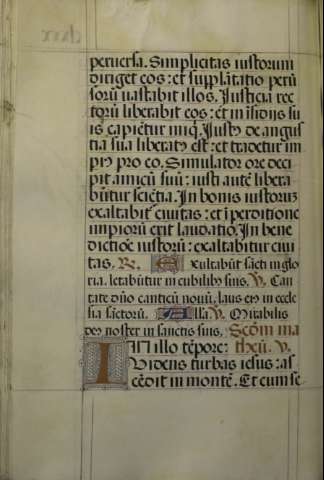 peruersa. Simplicitas iustorum
diriget eos: et supplãtatio peruͤ
sorũ uastabit illos. Iusticia rec
torũ liberabit eos: et in isidijs su
is capiẽtur iniq̃. Iustꝰ de angus
tia sua liberatꝰ est: et tradetur im
piꝰ pro eo. Simulator ore deci
pit amicũ suũ: iusti autẽ libera
bũtur sciẽtia. In bonis iustorum
exaltabit̃ ciuitas: et ĩ perditione
impiorũ erit laudatio. In bene
dictiõe iustorũ: exaltabitur ciui
tas. R. Exultabũt sãcti in glo
ria. letabũtur in cubilibꝰ suis. V. Can
tate dño canticũ nouũ, laus eiꝰ in eccle
sia sãctorũ. Alla V. Mirabilis
deꝰ noster in sanctis suis. Scõm ma
IN illo tẽpore: theũ. V.
Videns turbas iesus: as
cẽdit in montẽ. Et cum se